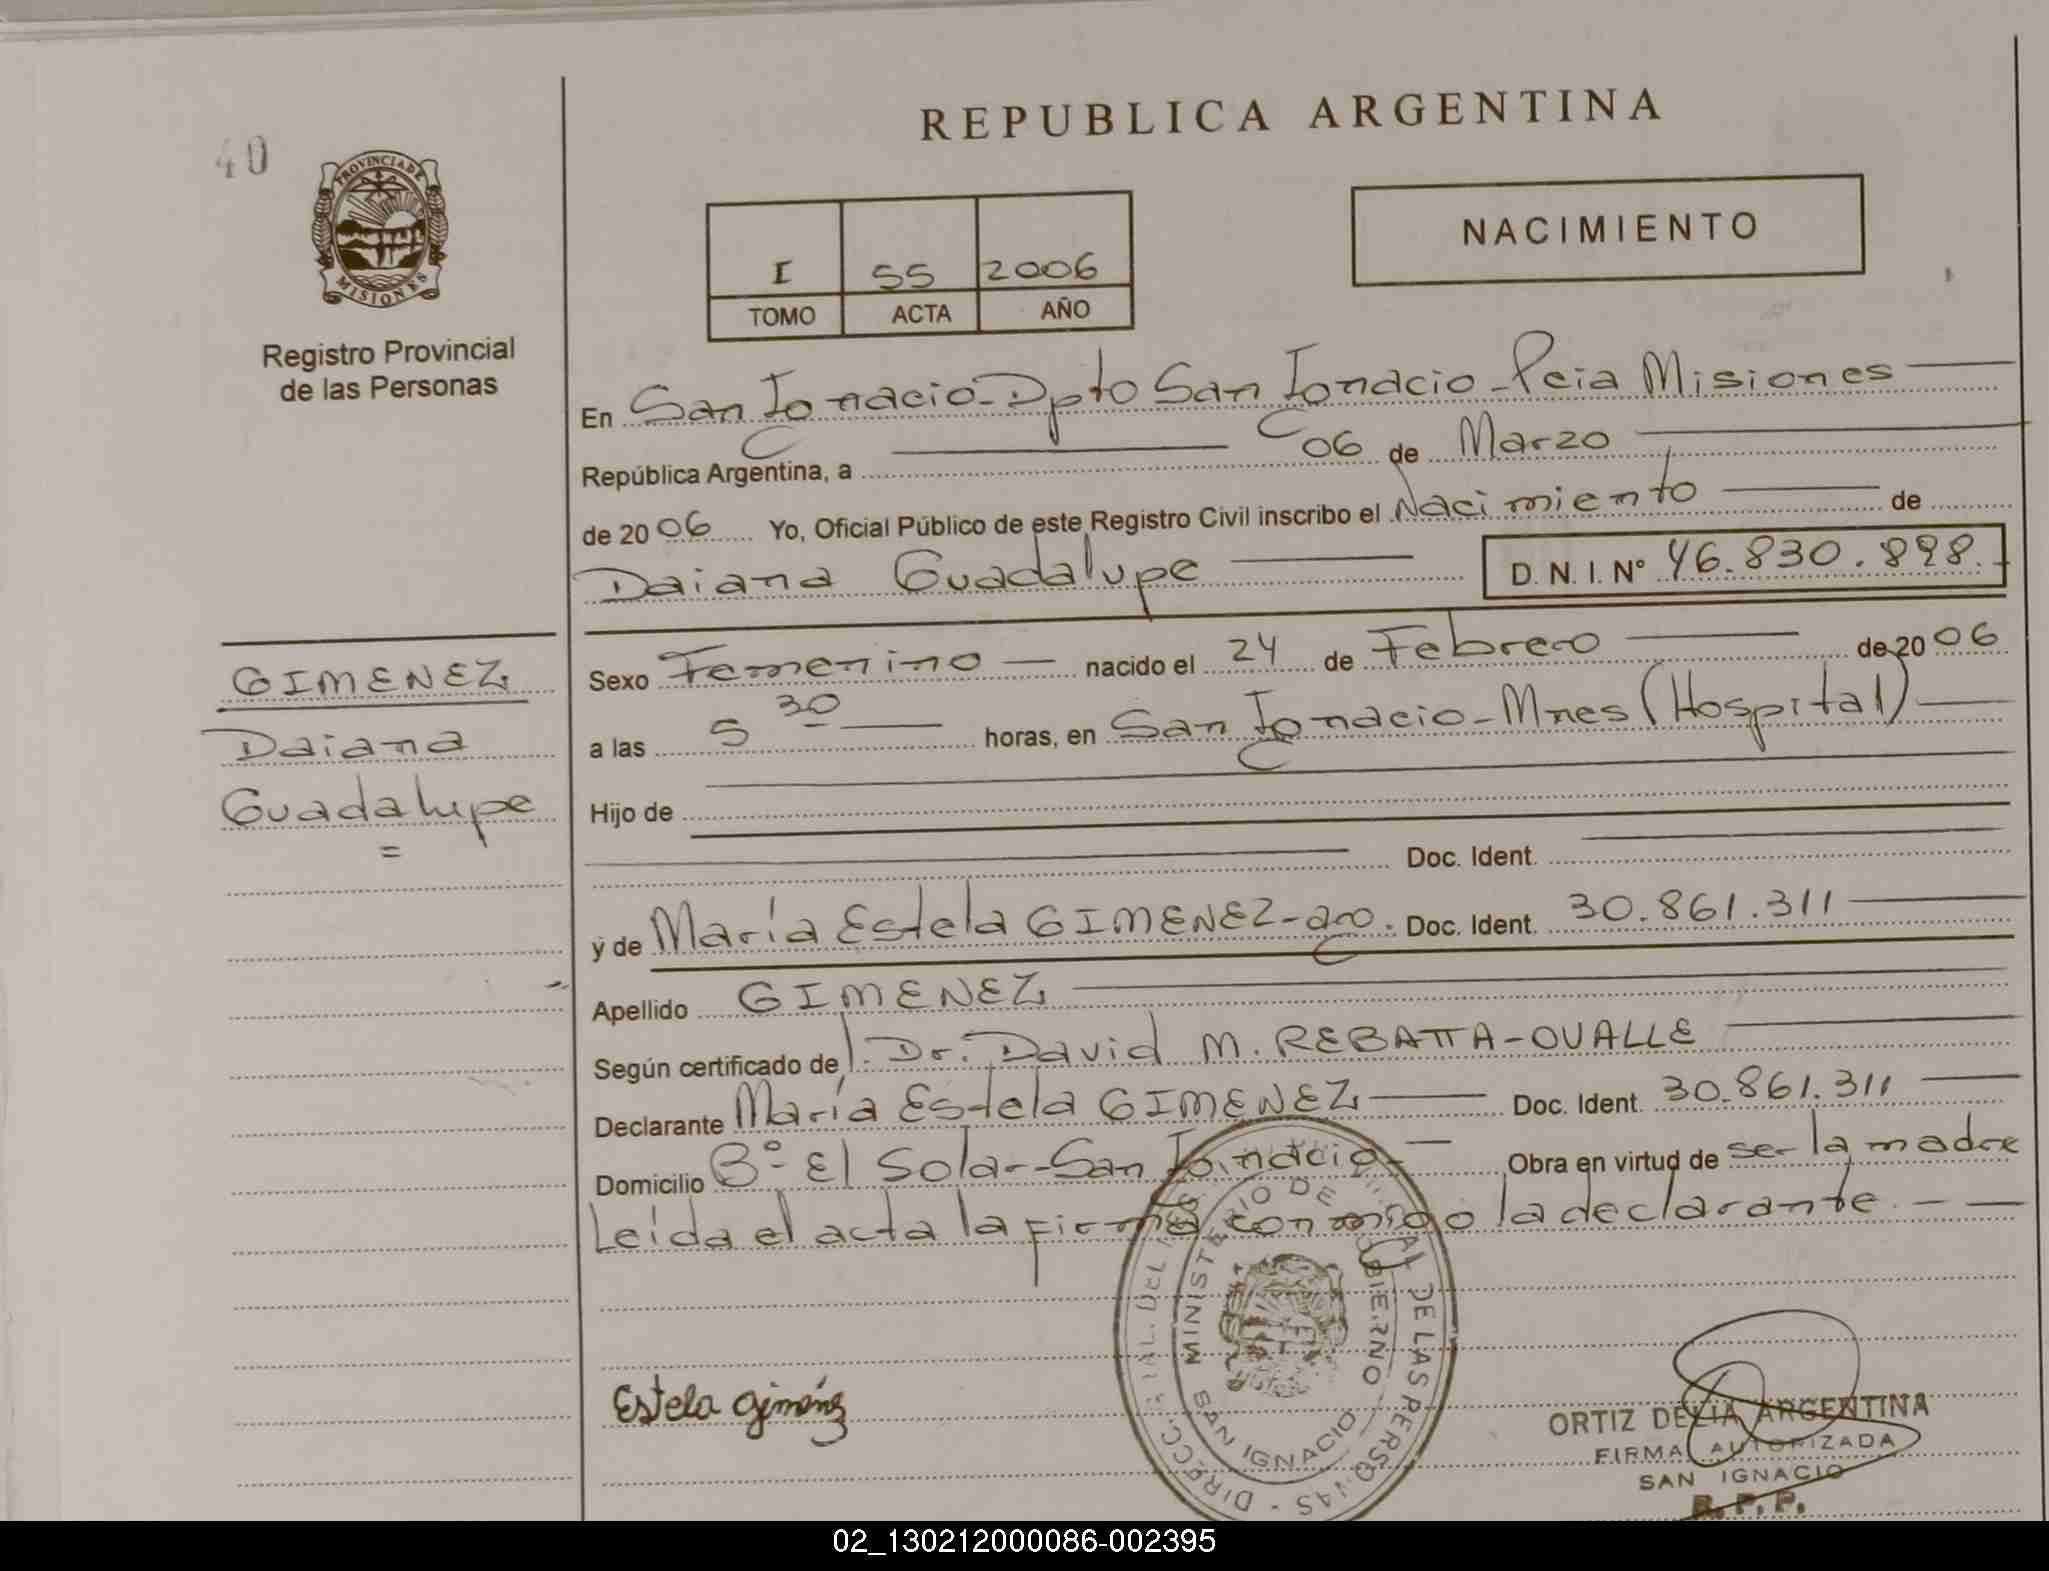 REPUBLICA ARGENTINA
40
PROVINCIA DE
MISIONES
Registro Provincial
de las Personas
I 55 2006
TOMO ACTA AÑO
NACIMIENTO
En San Ignacio-Dpto San Ignacio-Pcia Misiones
República Argentina, a 06 de Marzo
de 2006 Yo, Oficial Público de este Registro Civil inscribo el Nacimiento de
Daiana Guadalupe D. N. I. Nº 46.830.898.
GIMENEZ
Daiana
Guadalupe
=
Sexo Femenino nacido el 24 de Febrero de 2006
a las 5 30 horas, en San Ignacio-Mnes (Hospital)
Hijo de
Doc. Ident.
y de María Estela GIMENEZ- Doc. Ident. 30.861.311
Apellido GIMENEZ
Según certificado de Dr. David M. REBATTA-OVALLE
Declarante María Estela GIMENEZ Doc. Ident. 30.861.311
Domicilio Bº El Solar-San Ignacio Obra en virtud de ser la madre
Leída el acta la firma conmigo la declarante.
MINISTERIO DE GOBIERNO
DE LAS PERSONAS
SAN IGNACIO
Estela Giménez
ORTIZ DELIA ARGENTINA
FIRMA AUTORIZADA
SAN IGNACIO
R. P. P.
02_130212000086-002395